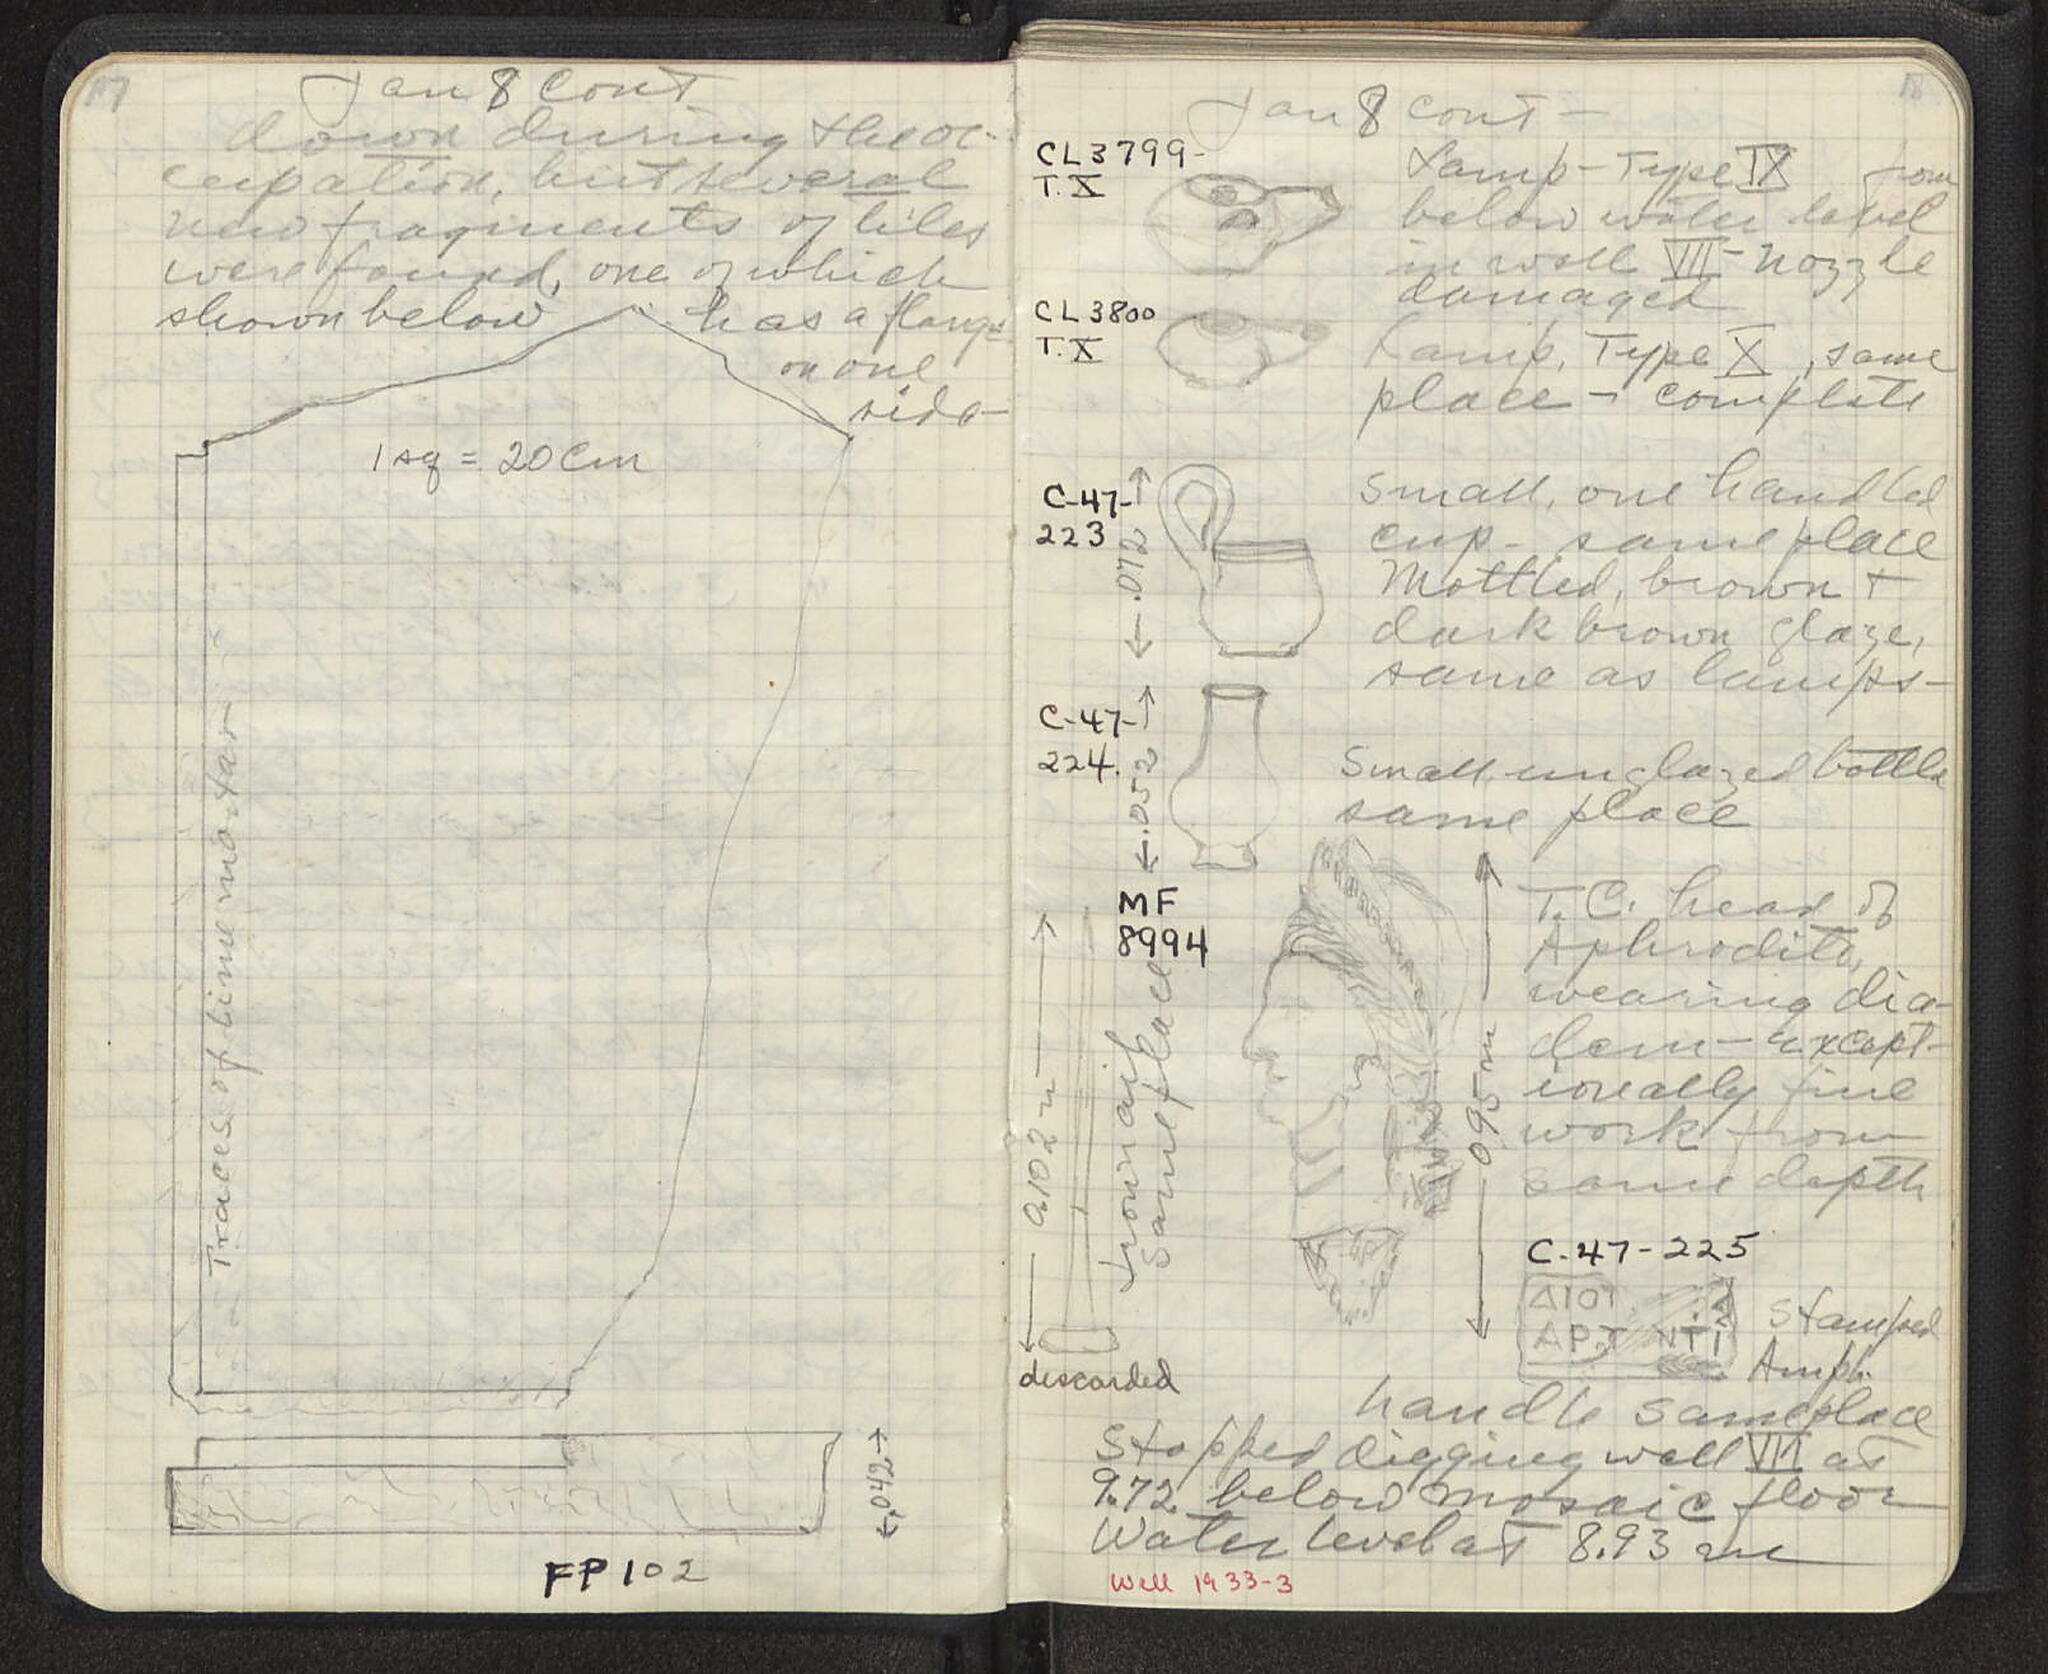 17
Jan 8 cont
down during the oc-
cupation, but several
new fragments of tiles
were found, one of which
shown below has a flange
on one
side-
1 sq = 20 Cm
Traces of lime mortar
.042
FP 102
18
Jan 8 cont -
CL 3799-
T. X
Lamp - Type IX from
below water level
in well VII - nozzle
damaged
CL 3800
T. X
Lamp, Type X, same
place - complete
C-47-
223
.072
Small, one handled
cup - same place
Mottled, brown +
dark brown glaze,
same as lamps -
C-47-
224.
.052
Small unglazed bottle
same place
MF
8994
T.C. head of
Aphrodite,
wearing dia-
dem - except-
ionally fine
work from
same depth
.095 m
0.102 m
Iron nail
same place
discarded
C-47-225
ΔΙΟΓ
ΑΡΤ ΝΤΙ
Stamped
Amph.
handle same place
Stopped digging well VII at
9.72 below mosaic floor
Water level at 8.93 m
Well 1933-3